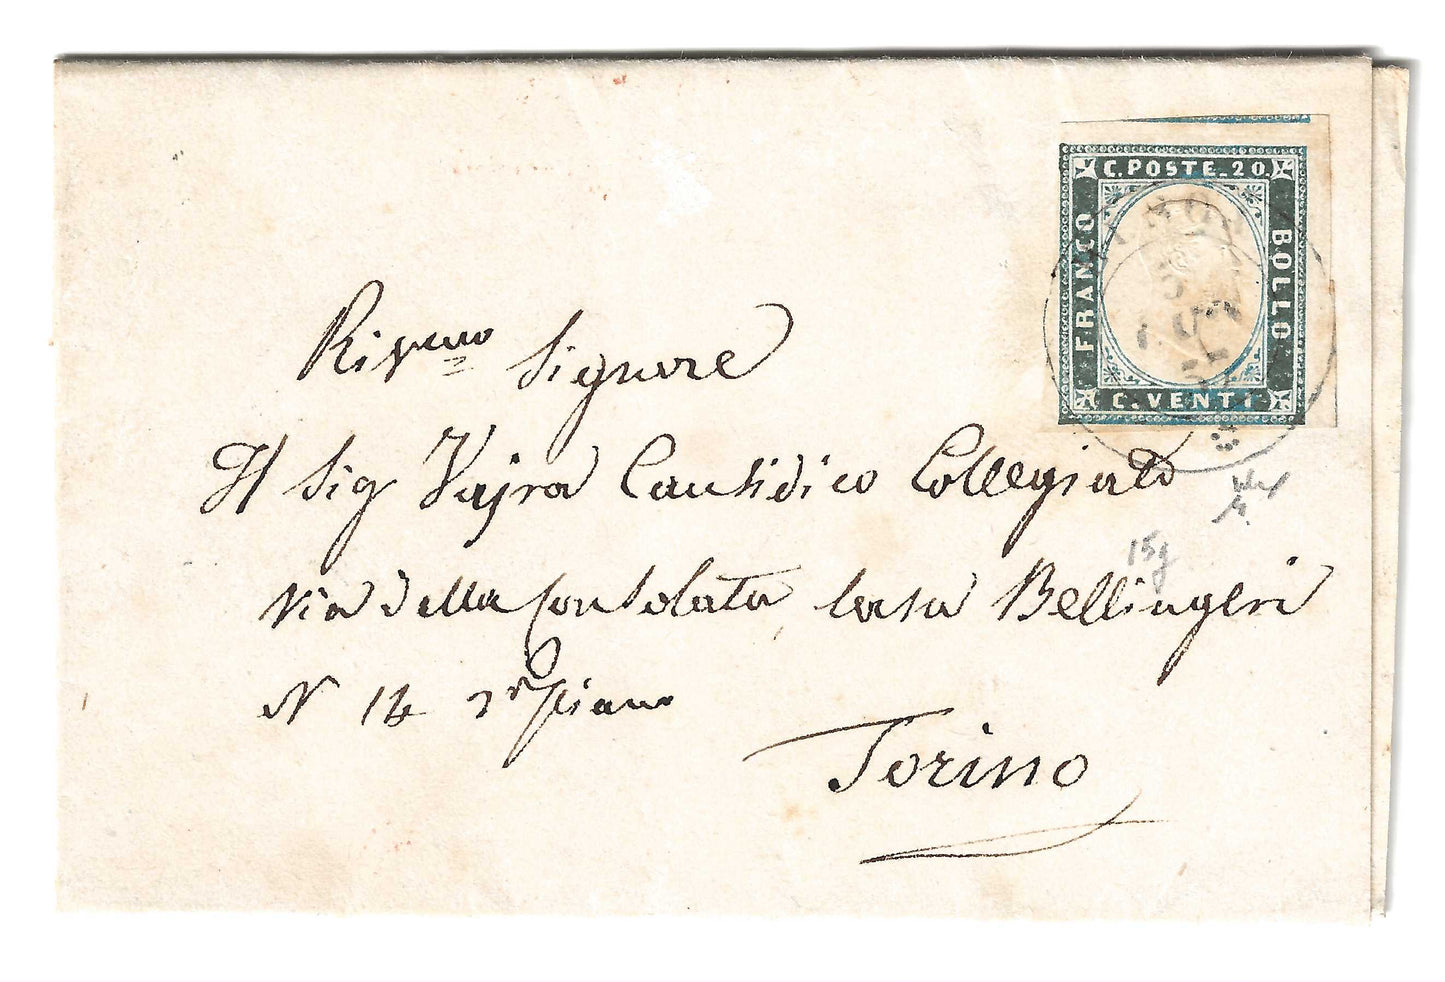 C. POSTE. 20.
FRANCO
BOLLO
C. VENTI.
Riv.mo Signore
Il Sig Vajra Causidico Collegiato
15g
Via della Consolata, Casa Bellingeri
N 14 2° piano
Torino